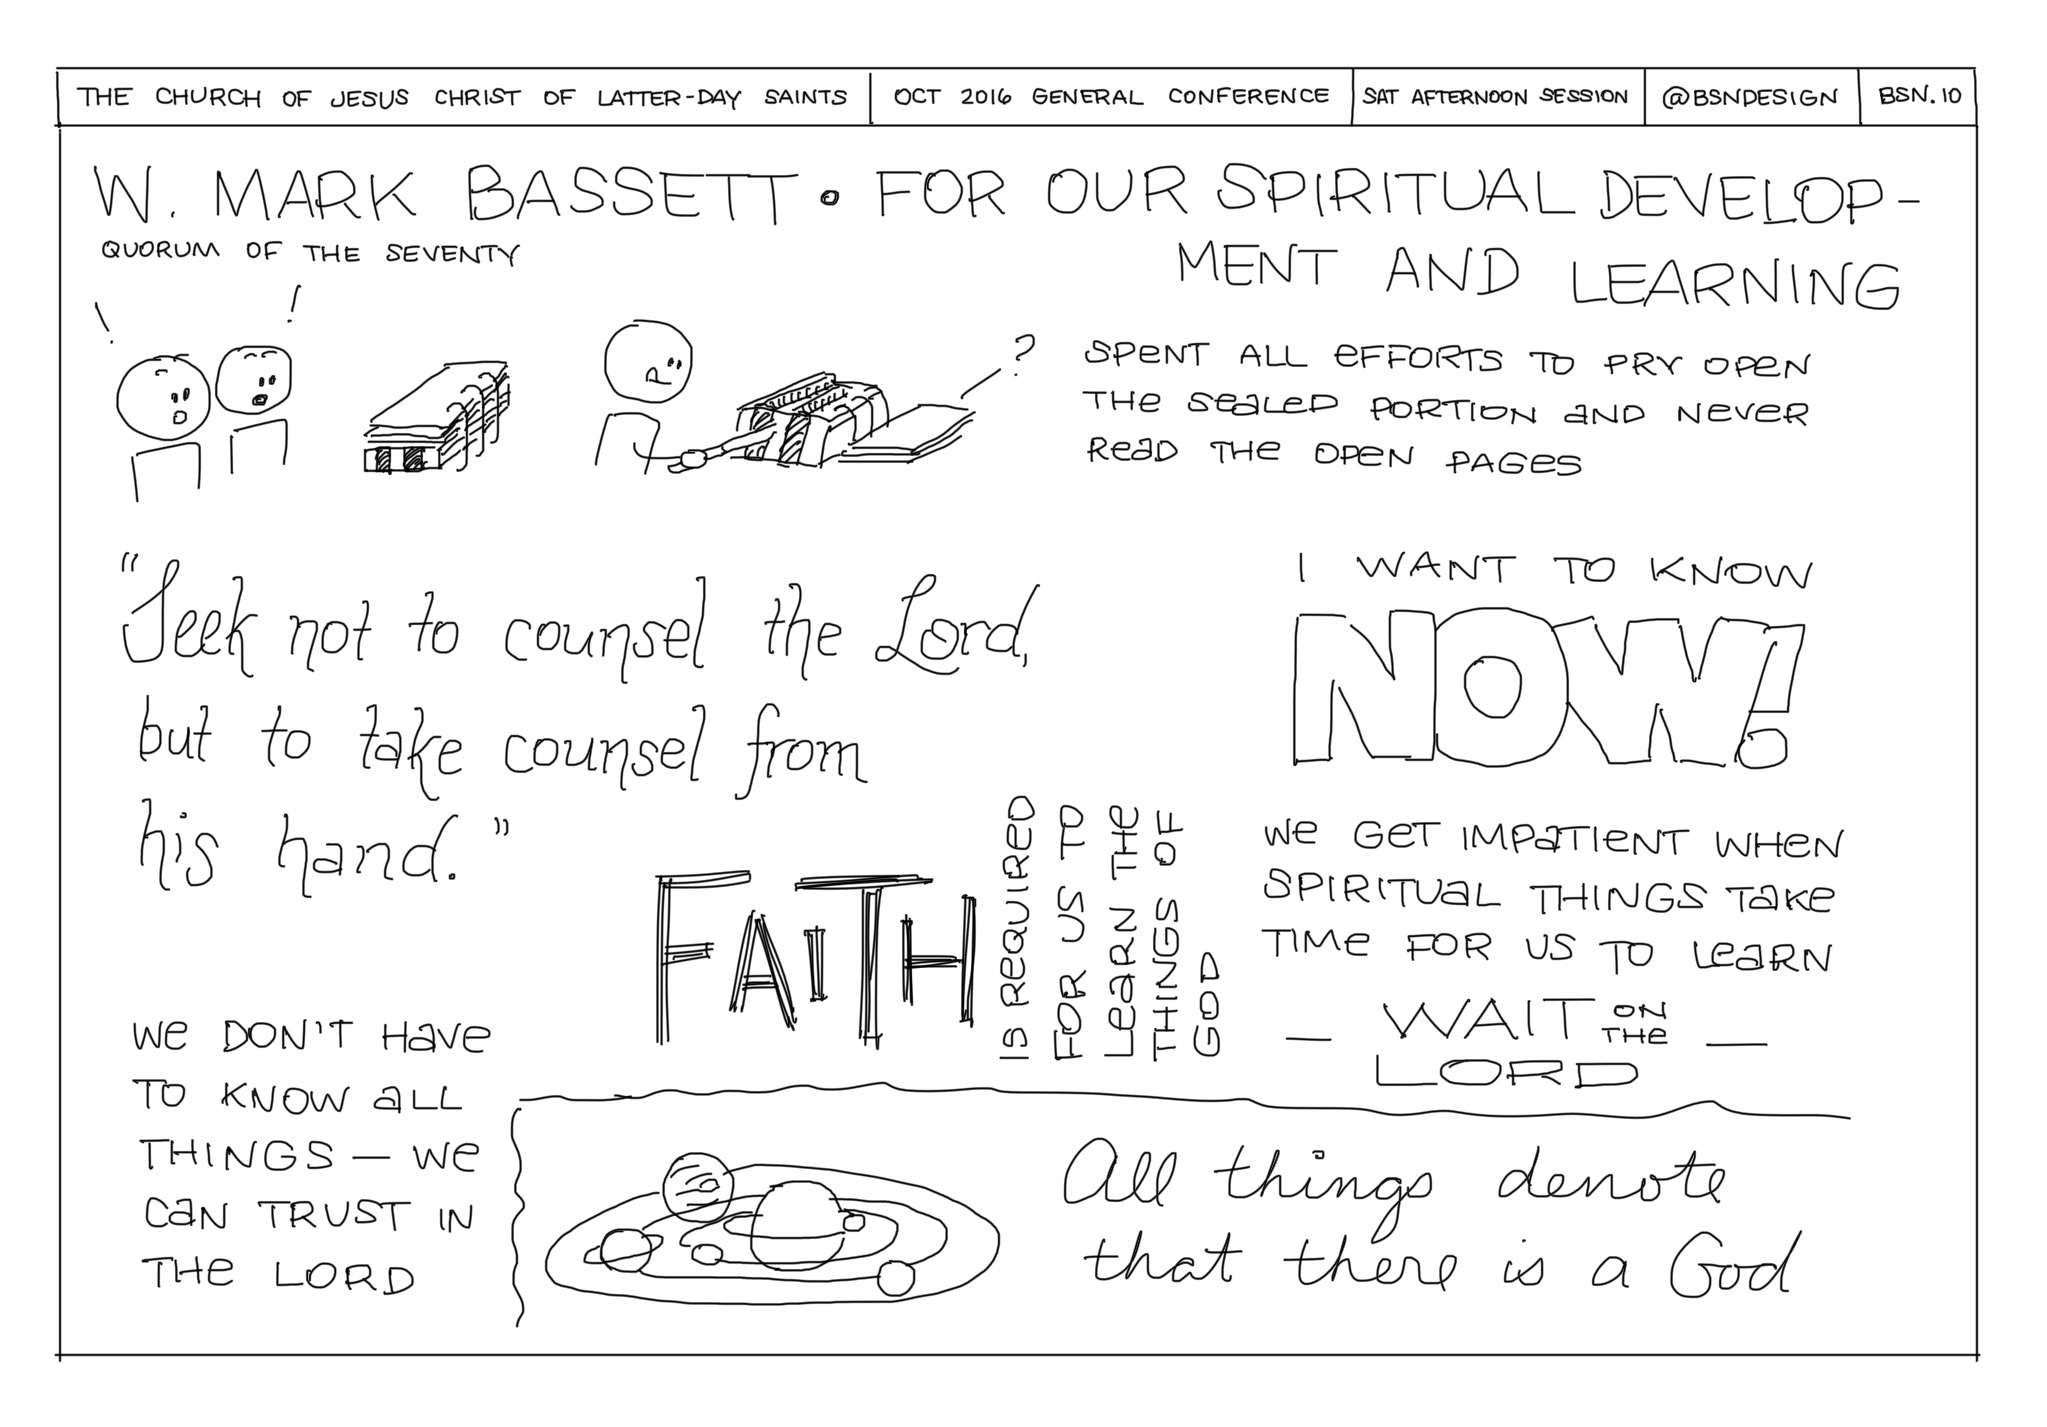 THE CHURCH OF JESUS CHRIST OF LATTER-DAY SAINTS
OCT 2016 GENERAL CONFERENCE
SAT AFTERNOON SESSION
@BSNDESIGN
BSN.10
W. MARK BASSETT • FOR OUR SPIRITUAL DEVELOP-
MENT AND LEARNING
QUORUM OF THE SEVENTY
!
!
?
SPENT ALL EFFORTS TO PRY OPEN
THE SEALED PORTION AND NEVER
READ THE OPEN PAGES
"Seek not to counsel the Lord,
but to take counsel from
his hand."
I WANT TO KNOW
NOW!
FAITH
IS REQUIRED
FOR US TO
LEARN THE
THINGS OF
GOD
WE GET IMPATIENT WHEN
SPIRITUAL THINGS TAKE
TIME FOR US TO LEARN
— WAIT ON THE —
LORD
WE DON'T HAVE
TO KNOW ALL
THINGS — WE
CAN TRUST IN
THE LORD
All things denote
that there is a God